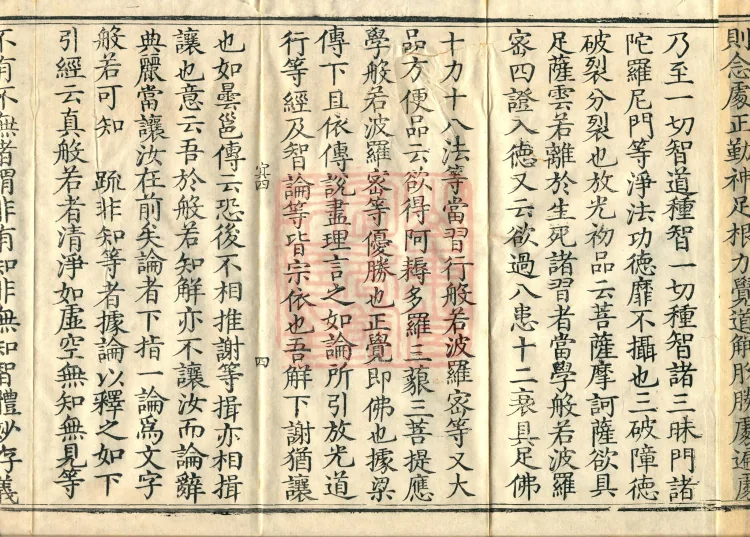 則念處正勤神足根力覺道解脫勝處遍處
乃至一切智道種智一切種智諸三昧門諸
陀羅尼門等淨法功德靡不攝也三破障德
破裂分裂也放光初品云菩薩摩訶薩欲具
足薩雲若離於生死諸習者當學般若波羅
密四證入德又云欲過八患十二衰具足佛
十力十八法等當習行般若波羅密等又大
品方便品云欲得阿耨多羅三藐三菩提應
學般若波羅密等優勝也正覺即佛也據梁
傳下且依傳說盡理言之如論所引放光道
行等經及智論等皆宗依也吾解下謝猶讓
宾四 四
也如曇邕傳云恐後不相推謝等揖亦相揖
讓也意云吾於般若知解亦不讓汝而論辭
典麗當讓汝在前矣論者下指一論為文字
般若可知 䟽非知等者據論以釋之如下
引經云真般若者清淨如虛空無知無見等
不有不無者謂非有知非無知智體妙存義